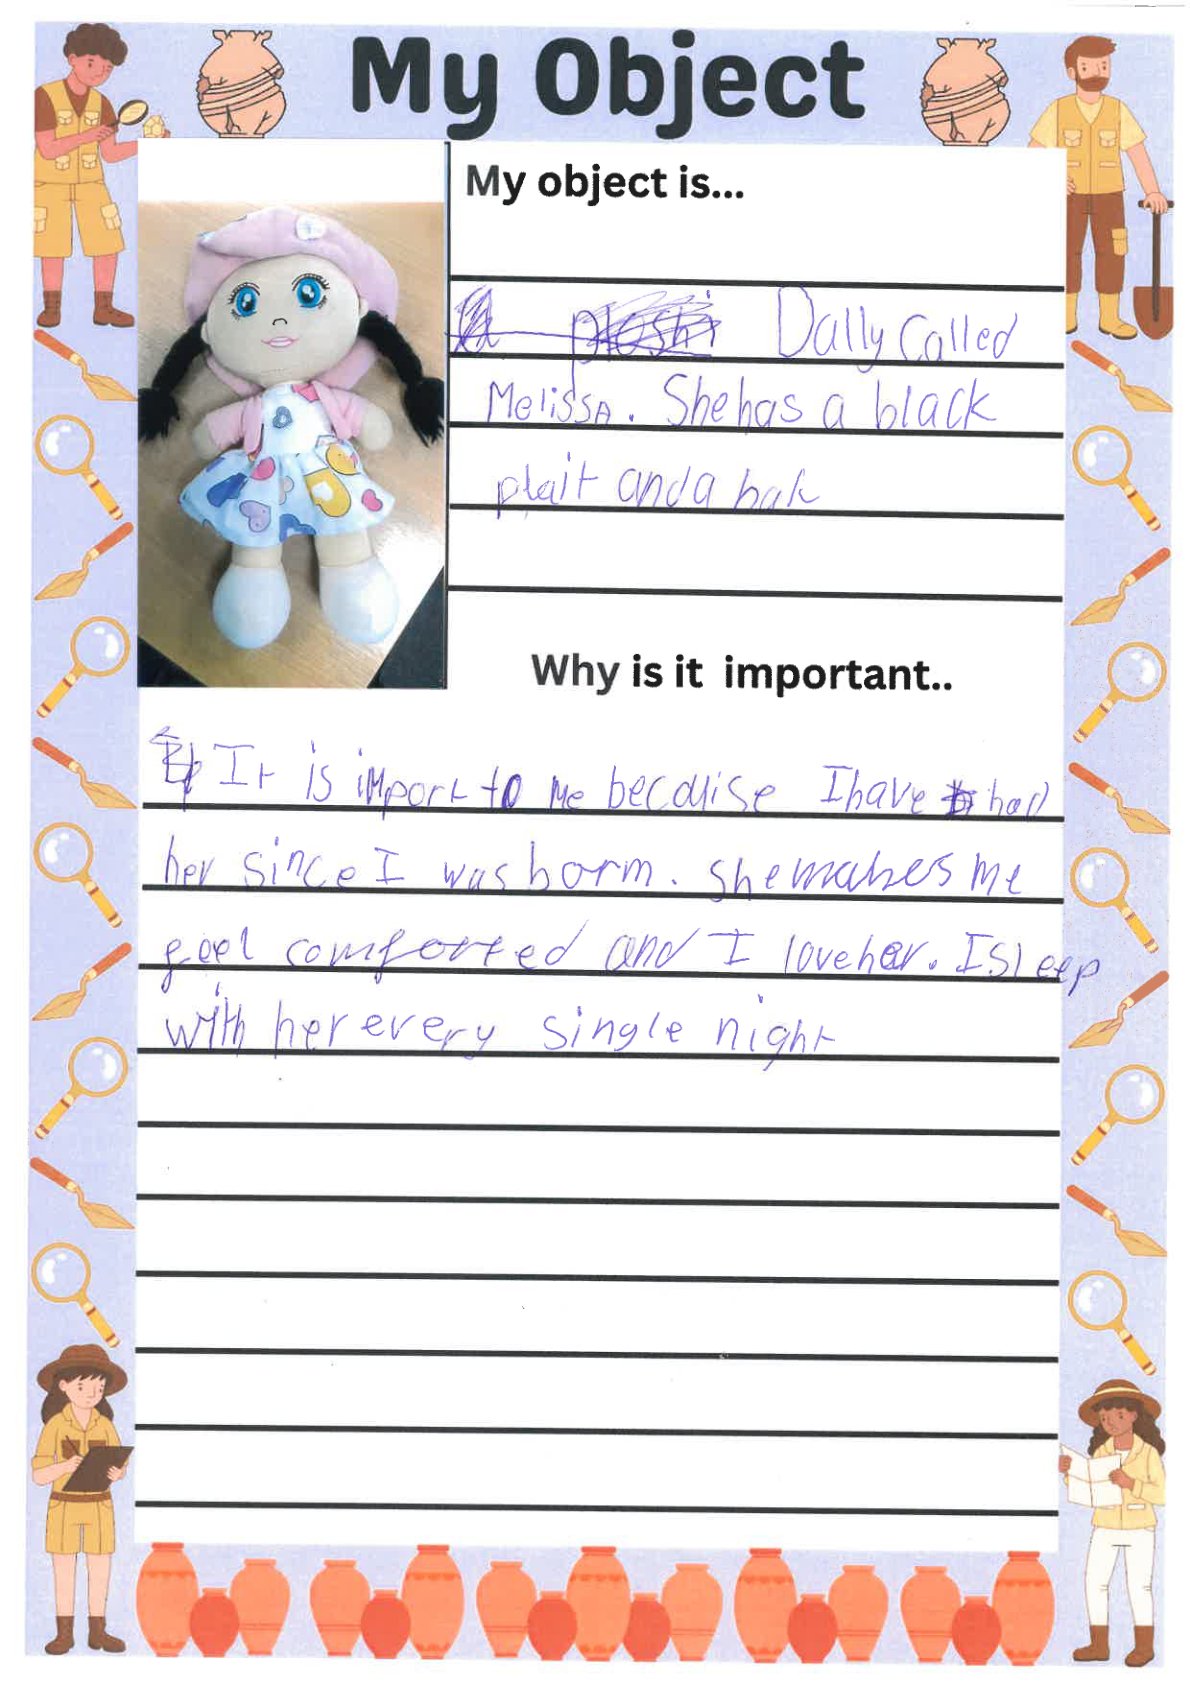 My Object
My object is...
Dally Called
Melissa. She has a black
plait and a hak
Why is it important..
It is import to me becauise I have had
her since I was borm. she makes me
feel comforted and I love her. I sleep
with her every single night